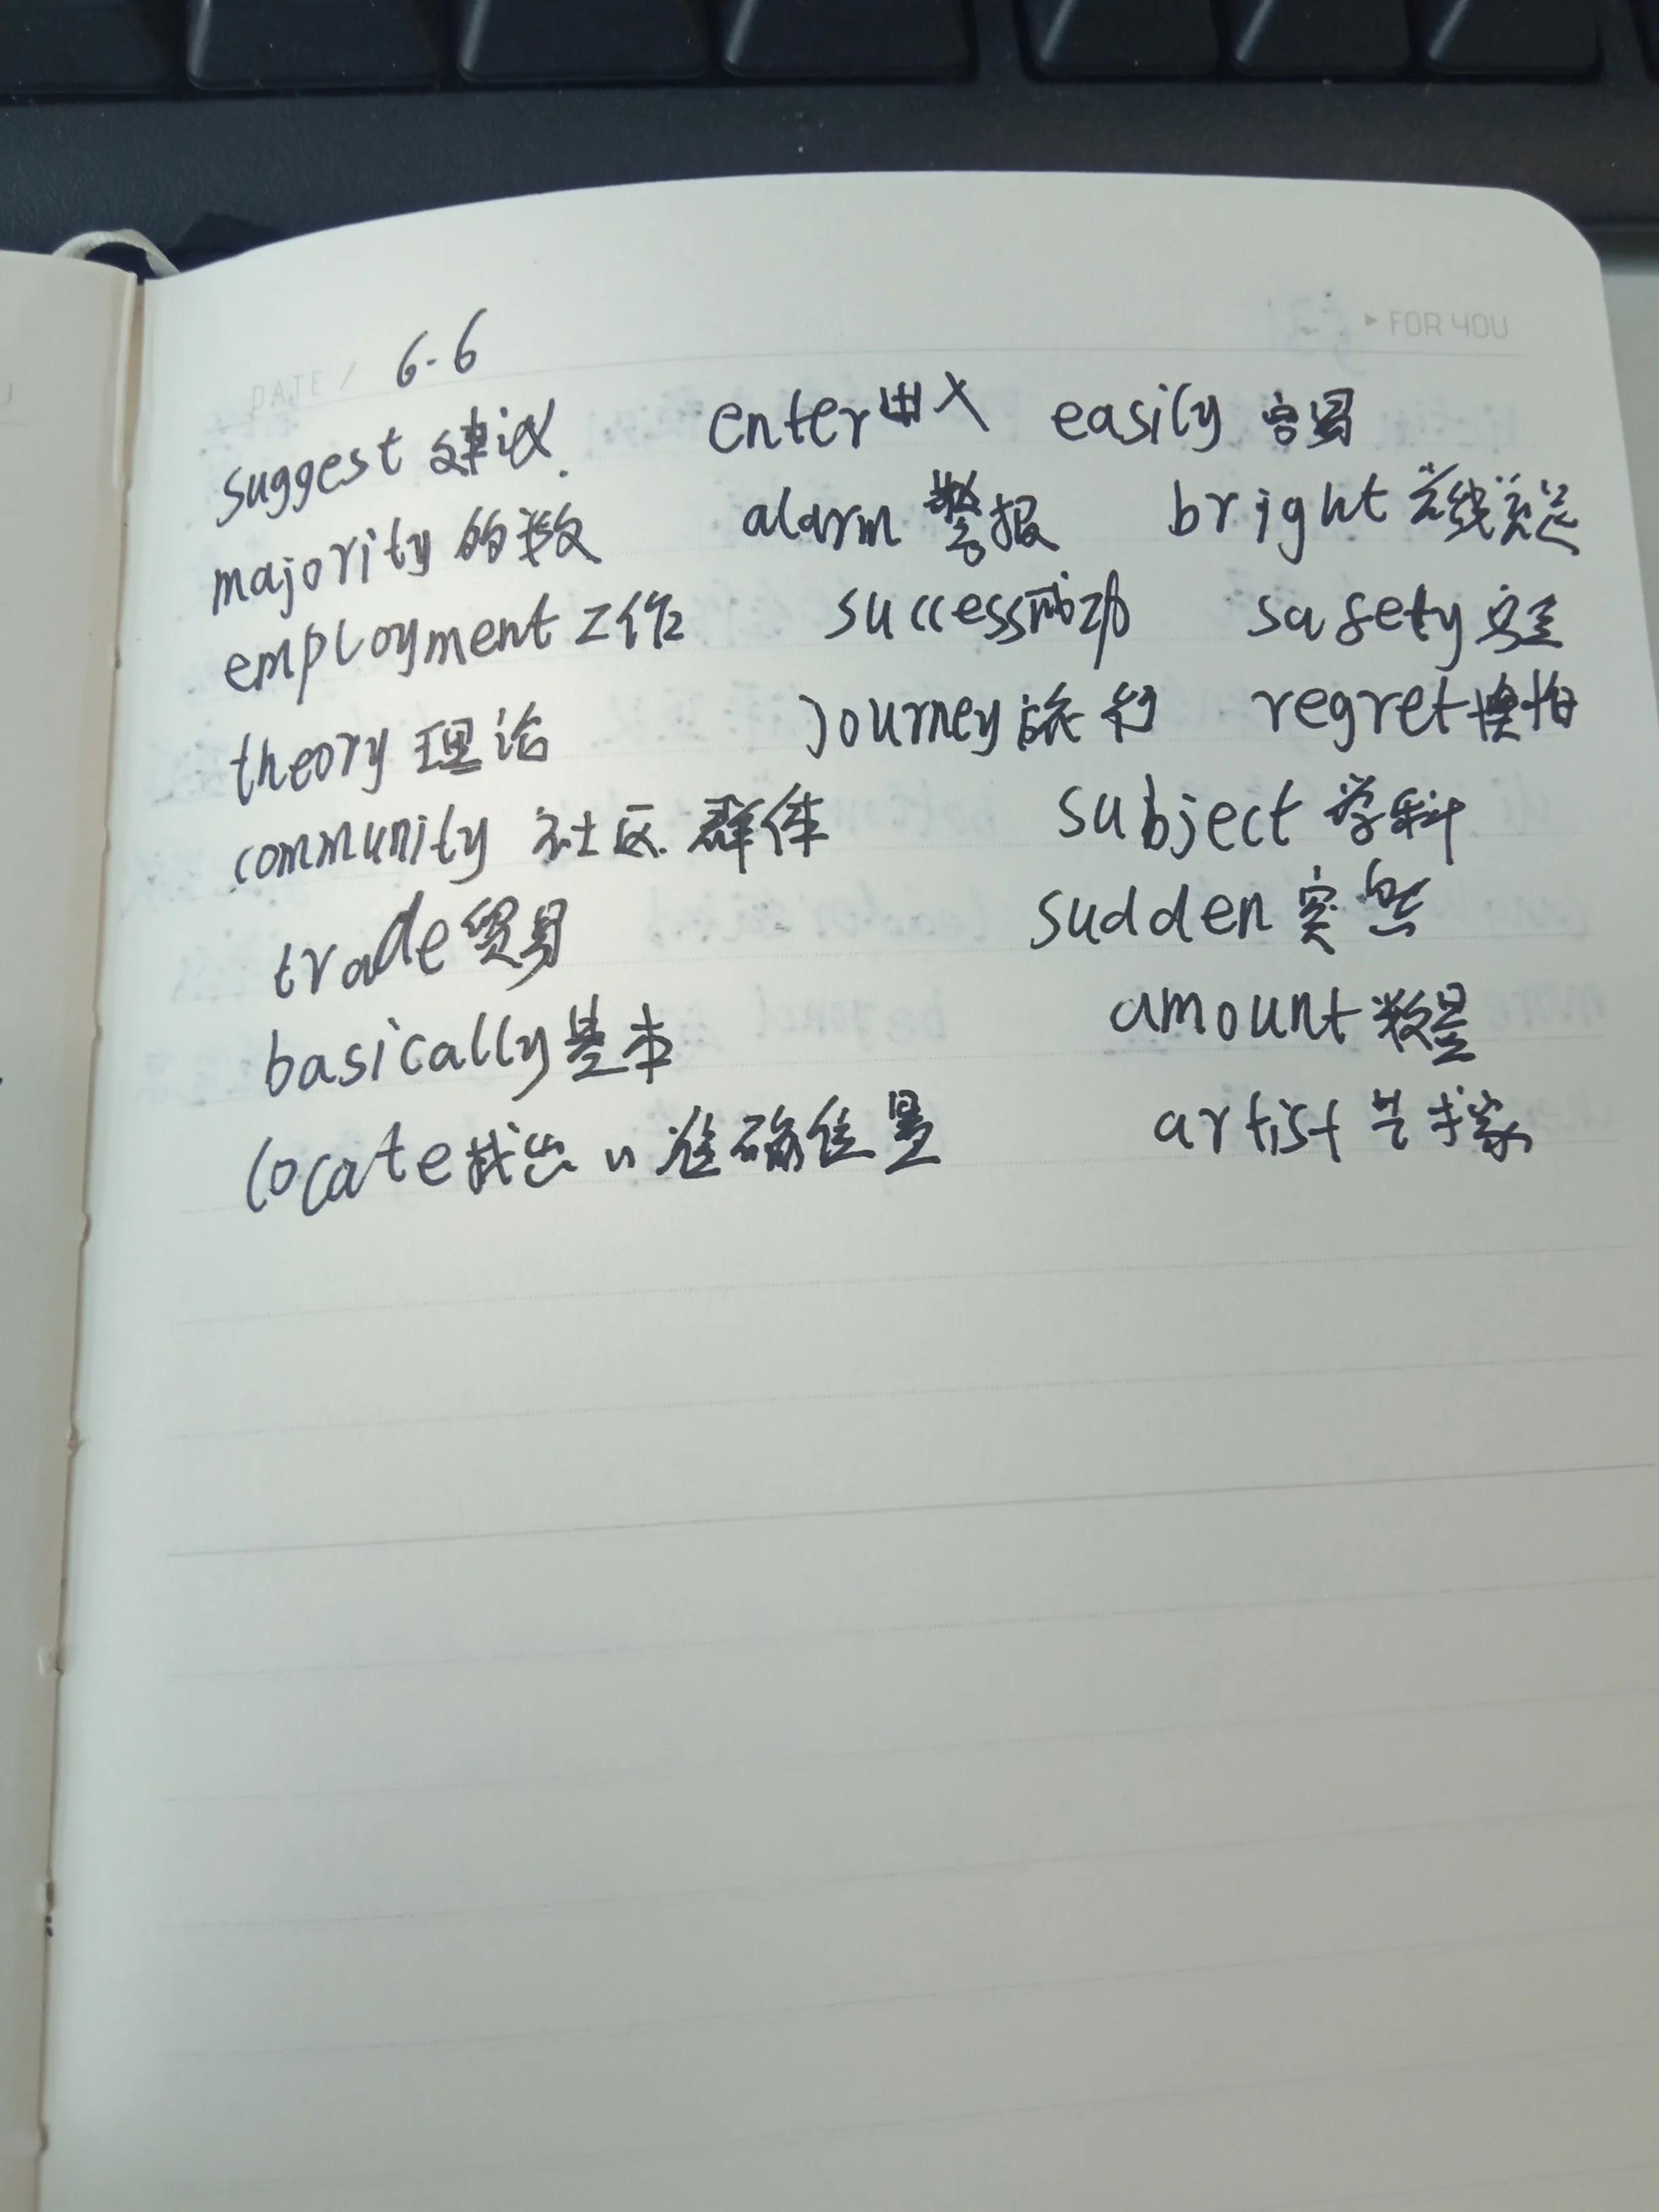 FOR YOU
DATE / 6-6
suggest 建议. enter 进入 easily 容易
majority 的数 alarm 警报 bright 光线充足
employment 工作 success 成功 safety 安全
theory 理论 journey 旅行 regret 懊悔
community 社区 群体 subject 学科
trade 贸易 sudden 突然
basically 基本 amount 数量
locate 找出 准确位置 artist 艺术家